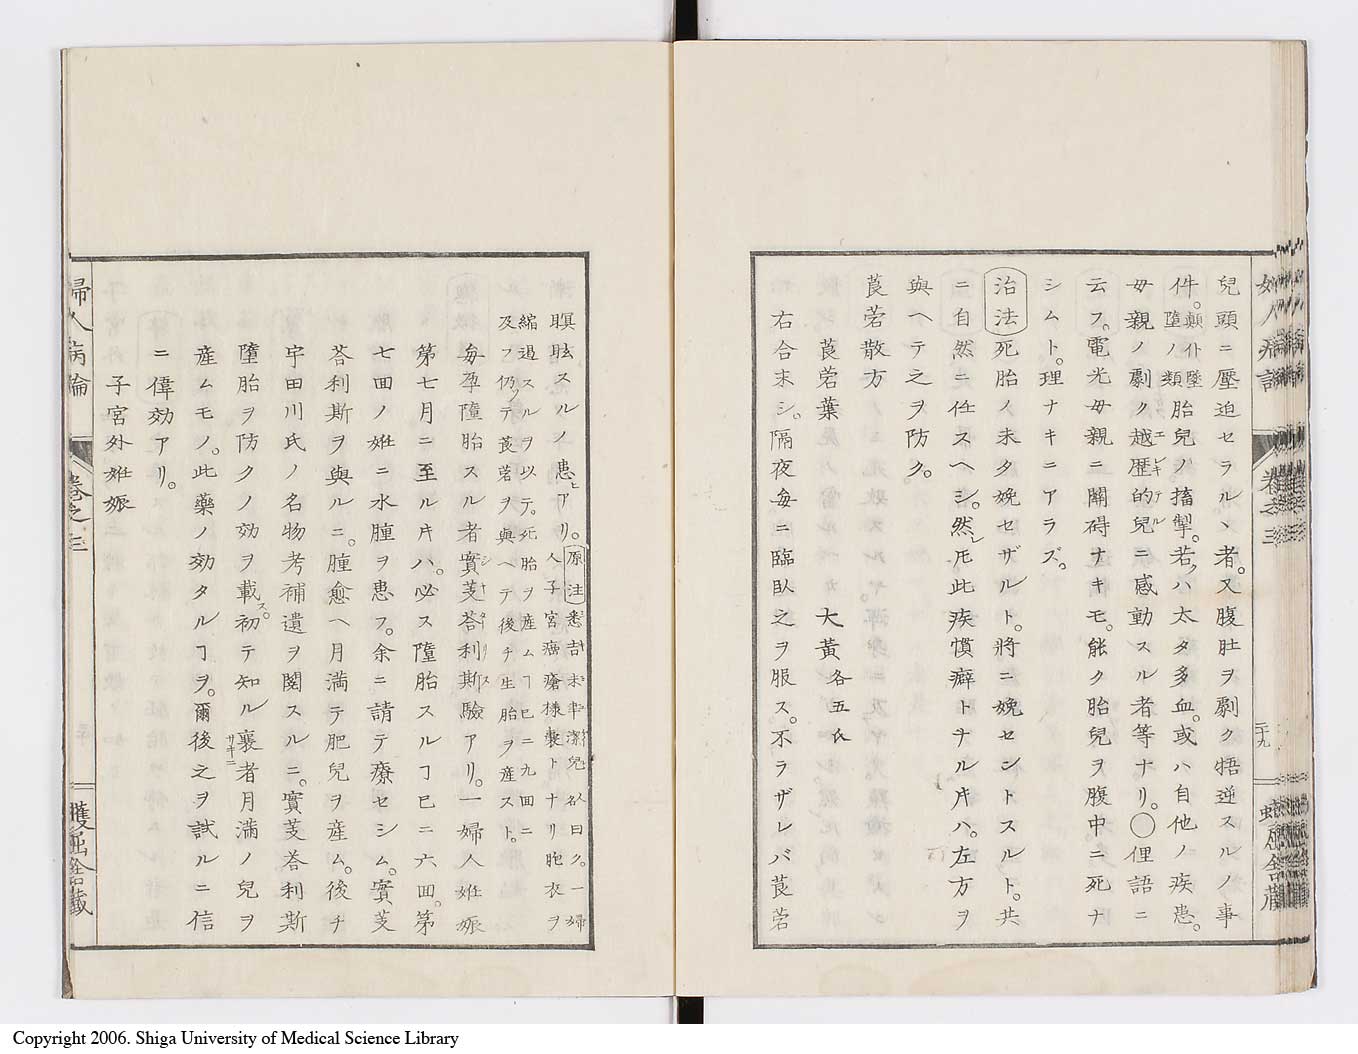 兒頭ニ壓迫セラルヽ者。又腹肚ヲ劇ク牾逆スルノ事
件。顛仆墜墮ノ類胎兒ノ搐掣。若ノハ太タ多血。或ハ自他ノ疾患。
母親ノ劇ク越歴的兒ニ感動スル者等ナリ。〇俚語ニ
エレキテル
云フ。電光母親ニ關碍ナキモ。能ク胎兒ヲ腹中ニ死ナ
シムト。理ナキニアラズ。
治法 死胎ノ未タ娩セザルト。將ニ娩セントスルト。共
ニ自然ニ任スヘシ。然レ𪜈此疾慣癖トナル片ハ。左方ヲ
與ヘテ之ヲ防ク。
莨菪散方
莨菪葉 大黃各五氏
右合末シ。隔夜每ニ臨臥之ヲ服ス。不ラザレバ莨菪
婦人病論 卷之三 二十九
瞑眩スルノ患ヒアリ。原注
人子宮癌瘡様嚢トナリ胞衣ヲ
縮迫スルヲ以テ。死胎ヲ産ムヿ已ニ九回ニ
及フ仍ツテ莨菪ヲ與ヘテ後チ生胎ヲ産スト。
每孕墮胎スル者實芰荅利斯驗アリ。一婦人姙娠
シキタリス
第七月ニ至ル片ハ。必ス墮胎スルヿ已ニ六回。第
七回ノ姙ニ水腫ヲ患フ。余ニ請テ療セシム。實芰
荅利斯ヲ與ルニ。腫愈ヘ月満テ肥兒ヲ産ム。後チ
宇田川氏ノ名物考補遺ヲ閱スルニ。實芰荅利斯
墮胎ヲ防クノ効ヲ載ス。初テ知ル曩者月満ノ兒ヲ
サキニ
産ムモノ。此藥ノ効タルヿヲ。爾後之ヲ試ルニ信
ニ偉効アリ。
子宮外姙娠
婦人病論 卷之三
Copyright 2006. Shiga University of Medical Science Library